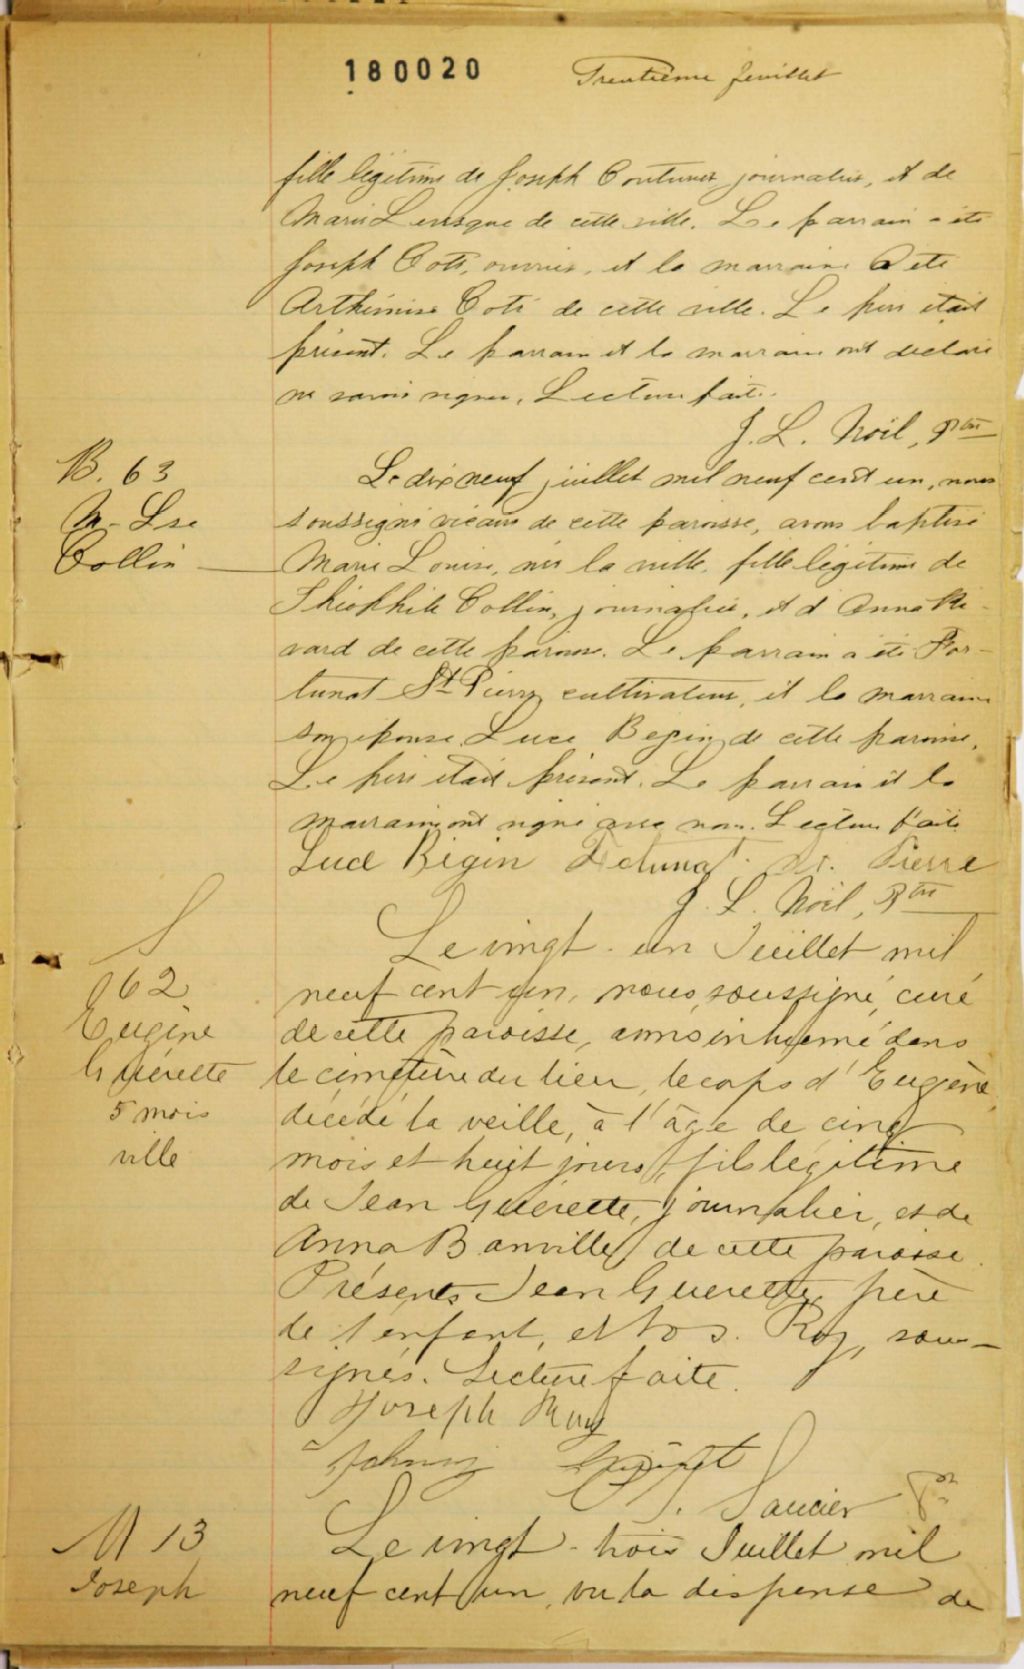 180020 Trentième feuillet
fille légitime de Joseph Couturier, journalier, et de
Marie Levesque de cette ville. Le parrain a été
Joseph Coté, ouvrier, et la marraine a été
Arthémise Coté de cette ville. Le père était
présent. Le parrain et la marraine ont déclaré
ne savoir signer. Lecture faite.
J. L. Noël, Ptre
B. 63
M. Lse
Collin
Le dix neuf juillet mil neuf cent un, nous
soussigné vicaire de cette paroisse, avons baptisé
Marie Louise, née la veille, fille légitime de
Théophile Collin, journalier, et d'Anna Ri-
vard de cette paroisse. Le parrain a été For-
tunat St Pierre cultivateur, et la marraine
son épouse Luce Begin de cette paroisse.
Le père était présent. Le parrain et la
marraine ont signé avec nous. Lecture faite
Luce Bégin Fortunat St. Pierre
J. L. Noël, Ptre
S
62
Eugène
Guérette
5 mois
ville
Le vingt-un Juillet mil
neuf cent un, nous, soussigné, curé
de cette paroisse, avons inhumé dans
le cimetière du lieu, le corps d'Eugène,
décédé la veille, à l'âge de cinq
mois et huit jours, fils légitime
de Jean Guérette, journalier, et de
Anna Banville, de cette paroisse.
Présents Jean Guerette, père
de l'enfant, et Jos. Roy, sous-
signés. Lecture faite.
Joseph Roy
Johnny
J. Saucier Ptre
M 13
Joseph
Le vingt-trois Juillet mil
neuf cent un, vu la dispense de